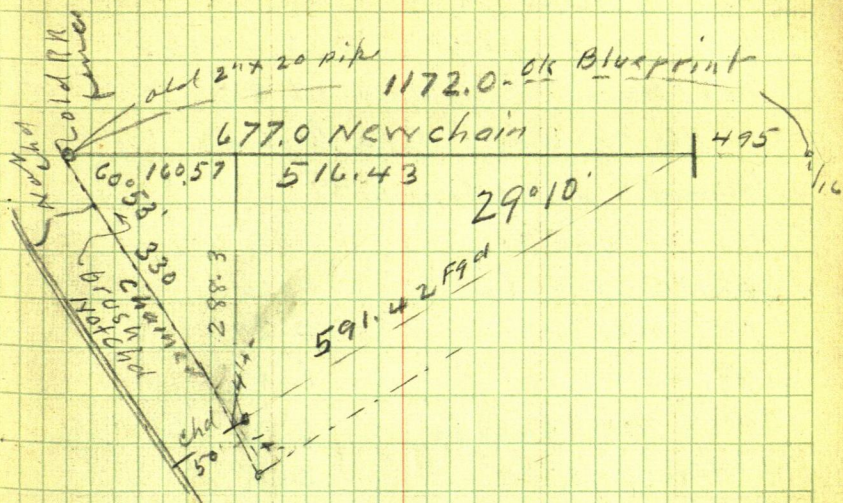 old RR
fence
old 2" x 20 pipe
1172.0 - ok Blueprint
677.0 New chain
495
1/16
Not chd
60°53'
160.57
516.43
29°10'
330
chained
brush
Not chd
288.3
591.42 Fgd
4'+-
chd
50'
1'+-